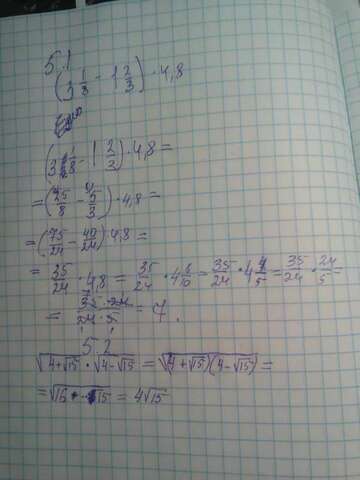 5.1
(3 1/8 - 1 2/3) · 4,8
(3 1/8 - 1 2/3) · 4,8 =
= (25/8 - 5/3) · 4,8 =
= (75/24 - 40/24) · 4,8 =
= 35/24 · 4,8 = 35/24 · 4 8/10 = 35/24 · 4 4/5 = 35/24 · 24/5 =
= 35 · 24/24 · 5 = 7.
5.2
√4+√15 · √4-√15 = √(4+√15)(4-√15) =
= √16 - 15 = 4√15